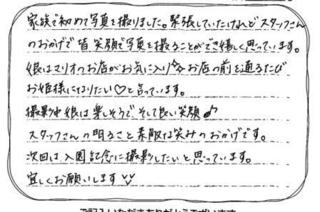 家族で初めて写真を撮りました。緊張していたけれどスタッフさん
のおかげで皆笑顔で写真を撮ることができ嬉しく思っています。
娘はマリオのお店がお気に入り☆お店の前を通るたび
お姫様になりたい♡と言っています。
撮影中娘は楽しそうで、そして良い笑顔♪
スタッフさんの明るさと素敵な笑みのおかげです。
次回は入園記念に撮影したいと思っています。
宜しくお願いします
ご記入いただきありがとうございます